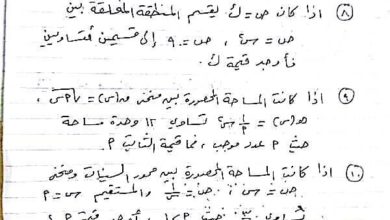 ٨) اذا كان ص = ك يقسم المنطقة المغلقة بين
ص = س٢ ، ص = ٩ إلى قسمين متساويين
فأوجد قيمة ك
٩) اذا كانت المساحة المحصورة بين منحنى ق(س) =
هـ(س) = س٢ تساوي ١٢ وحدة مساحة
حيث P عدد موجب ، فما قيمة الثابت P
١٠) اذا كانت المساحة المحصورة بين محور السينات ومنحنى
ص = والمستقيم س = P
تساوي قيمة P ؟